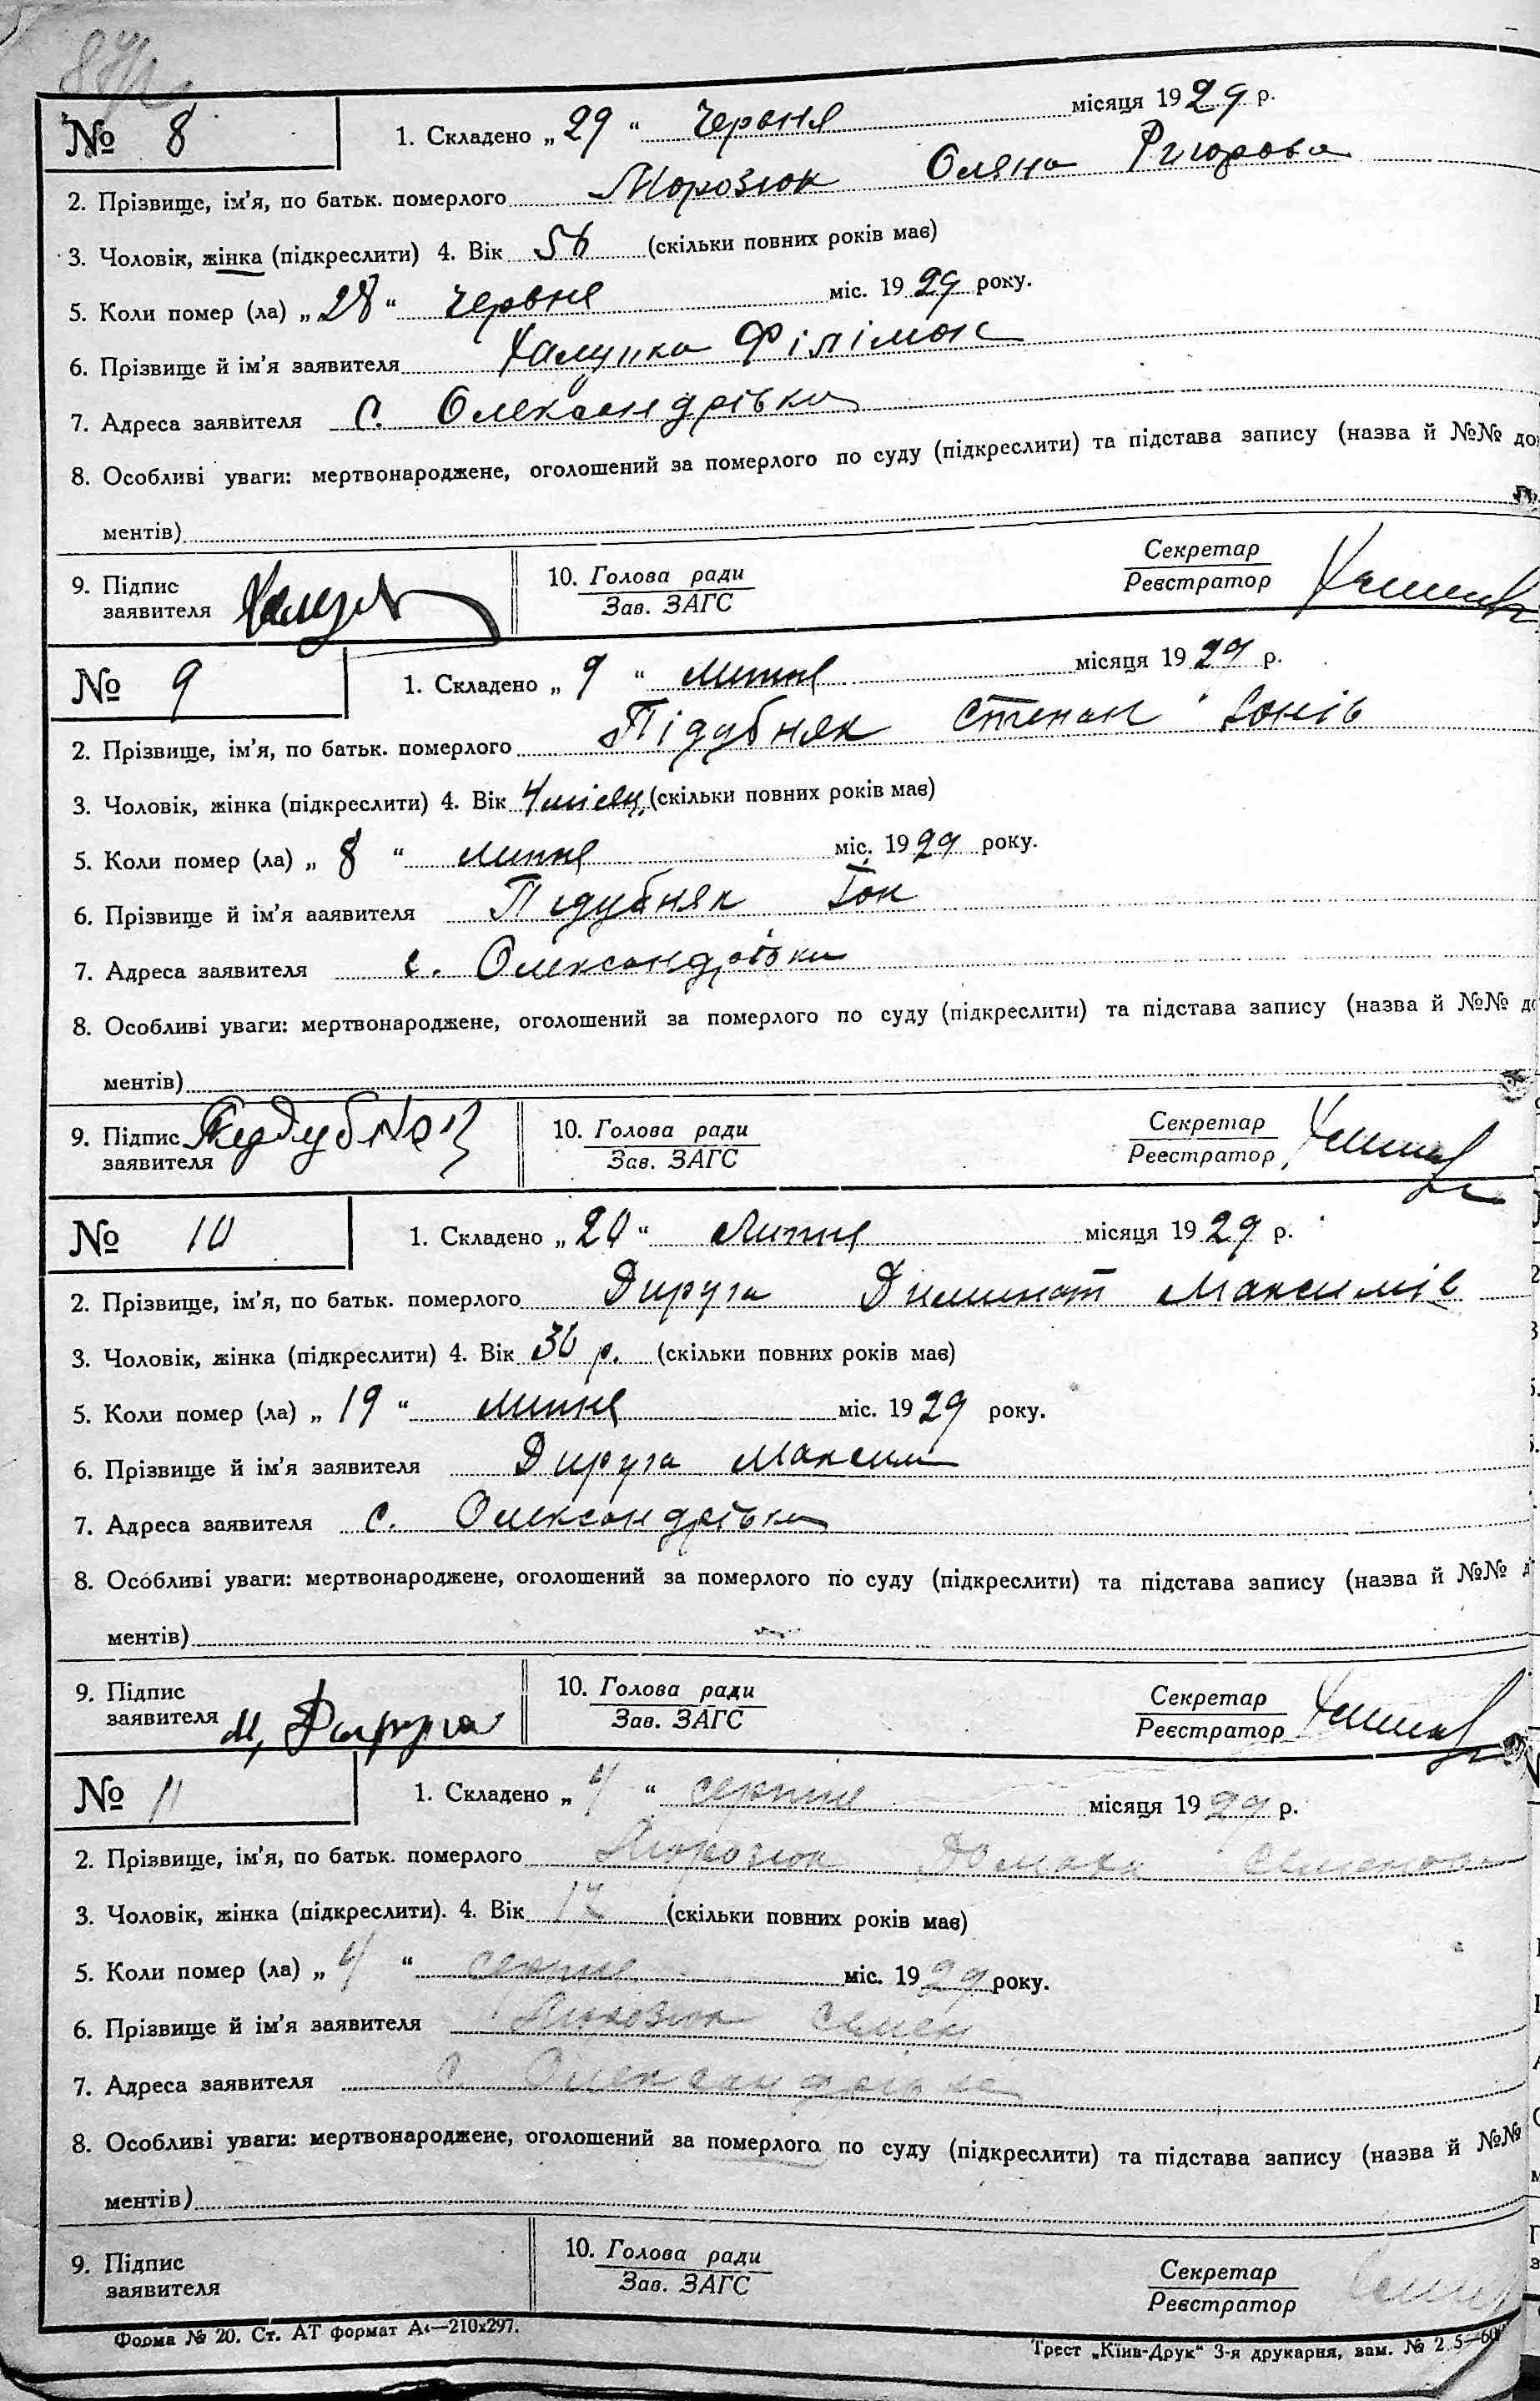 № 8 1. Складено „29“ Червня місяця 1929 р.
2. Прізвище, ім'я, по батьк. померлого Морозюк Оляна Ригорова
3. Чоловік, жінка (підкреслити) 4. Вік 56 (скільки повних років має)
5. Коли помер (ла) „28“ Червня міс. 1929 року.
6. Прізвище й ім'я заявителя Халупка Філімон
7. Адреса заявителя С. Олександрівки
8. Особливі уваги: мертвонароджене, оголошений за померлого по суду (підкреслити) та підстава запису (назва й №№ до
ментів)
9. Підпис заявителя 10. Голова ради Зав. ЗАГС Секретар Реєстратор
№ 9 1. Складено „9“ липня місяця 1929 р.
2. Прізвище, ім'я, по батьк. померлого Підубняк Степан Іонів
3. Чоловік, жінка (підкреслити) 4. Вік 4 місяц. (скільки повних років має)
5. Коли помер (ла) „8“ липня міс. 1929 року.
6. Прізвище й ім'я ааявителя Підубняк Іон
7. Адреса заявителя с. Олександрівки
8. Особливі уваги: мертвонароджене, оголошений за померлого по суду (підкреслити) та підстава запису (назва й №№ до
ментів)
9. Підпис заявителя 10. Голова ради Зав. ЗАГС Секретар Реєстратор
№ 10 1. Складено „20“ Липня місяця 1929 р.
2. Прізвище, ім'я, по батьк. померлого Дируга Максимів
3. Чоловік, жінка (підкреслити) 4. Вік 36 р. (скільки повних років має)
5. Коли помер (ла) „19“ липня міс. 1929 року.
6. Прізвище й ім'я заявителя Дируга Максим
7. Адреса заявителя с. Олександрівки
8. Особливі уваги: мертвонароджене, оголошений за померлого по суду (підкреслити) та підстава запису (назва й №№ д
ментів)
9. Підпис заявителя М. Дируга 10. Голова ради Зав. ЗАГС Секретар Реєстратор
№ 11 1. Складено „4“ серпня місяця 1929 р.
2. Прізвище, ім'я, по батьк. померлого Морозюк Домаха Семенова
3. Чоловік, жінка (підкреслити). 4. Вік (скільки повних років має)
5. Коли помер (ла) „4“ серпня міс. 1929 року.
6. Прізвище й ім'я заявителя Морозюк Семен
7. Адреса заявителя С. Олександрівка
8. Особливі уваги: мертвонароджене, оголошений за померлого по суду (підкреслити) та підстава запису (назва й №№
ментів)
9. Підпис заявителя 10. Голова ради Зав. ЗАГС Секретар Реєстратор
Форма № 20. Ст. АТ формат А4—210x297. Трест „Київ-Друк“ 3-я друкарня, зам. №